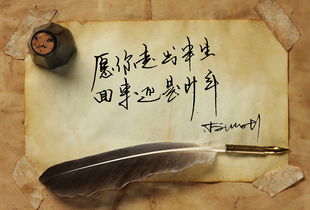 愿你走出半生
回来还是少年